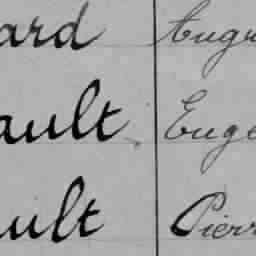 ard Augu
ault Euge
ault Pierr